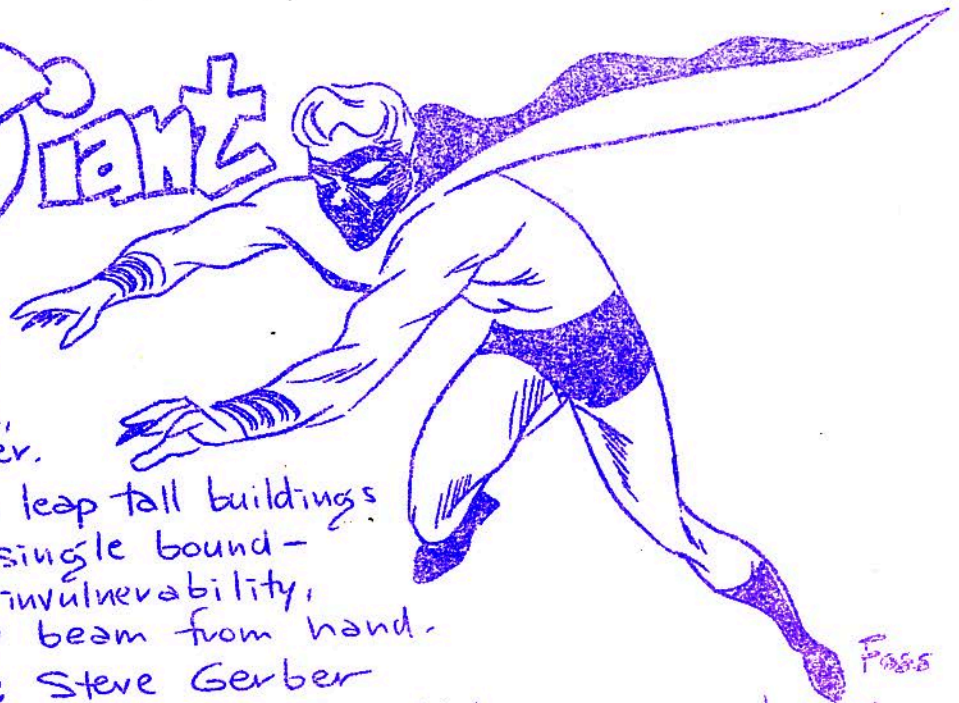 Giant
er.
leap tall buildings
single bound–
invulnerability,
beam from hand.
Steve Gerber
Foss